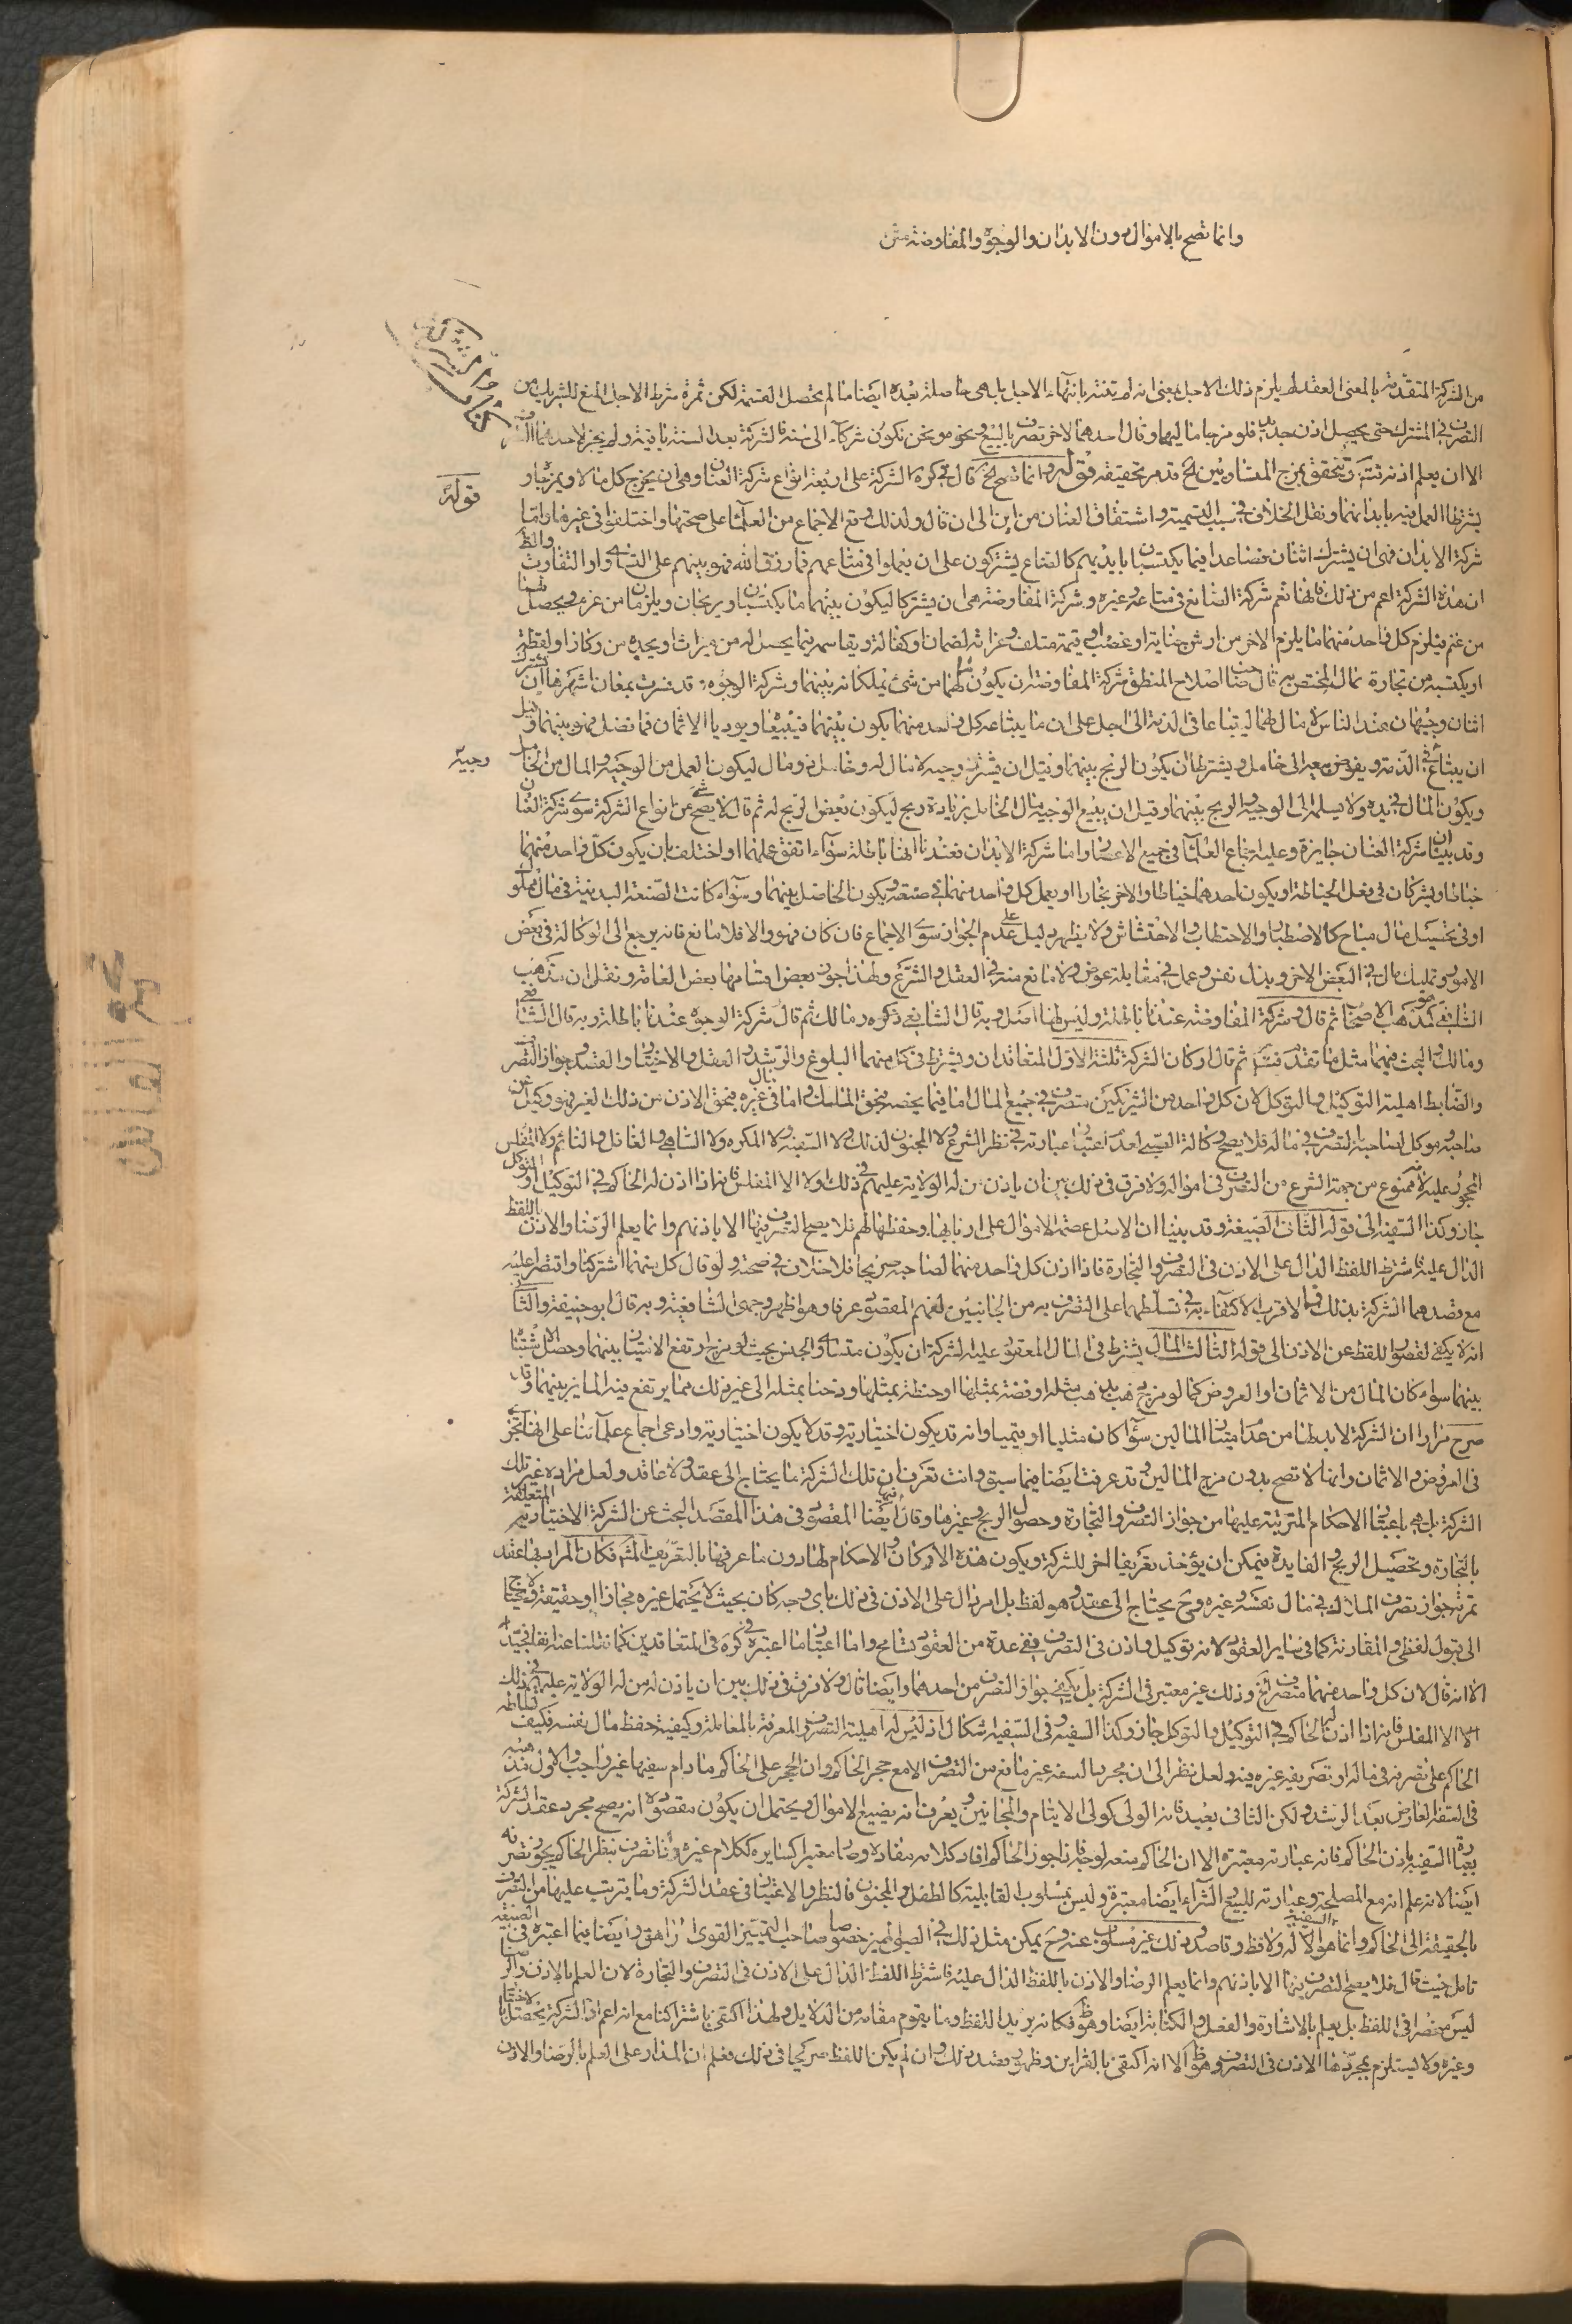 وانما تصح بالاموال دون الابدان والوجوه والمفاوضة متن
كتاب الشركة
من الشركة المتقدمة بالمعنى العقد لم يلزم ذلك الاجل بمعنى انه لم تنته بانتهاء الاجل بل هى حاصلة بعده ايضا ما لم يحصل القسمة لكن ثمرة شرط الاجل المنع للشريك من
التصرف فى المشترك حتى يحصل اذن جديد فلو مزجا ماليهما وقال احدهما للاخر تصرف بالبيع ونحوه ونحن نكون شركاء الى سنة فالشركة بعد السنة باقية ولم يجز لاحدهما
الا ان يعلم اذنه تتحقق بمزج المتساويين الخ قد مر تحقيقه قوله وانما تصح الخ قال فى كره الشركة على اربعة انواع شركة العنان وهى ان يخرج كل مالا ويمزجاه و
يشترطا العمل فيه بابدانهما ونقل الخلاف فى سبب التسمية واشتقاق العنان من اين الى ان قال ولذلك وقع الاجماع من العلماء على صحتها واختلفوا فى غيرها واما
شركة الابدان فهى ان يشترك اثنان فصاعدا فيما يكتسبون بايديهم كالصناع يشتركون على ان يعملوا فى صناعتهم فما رزق الله فهو بينهم على التساوى او التفاوت والظ
ان هذه الشركة اعم من ذلك فانها تعم شركة الصانع فى متاعه وغيره وشركة المفاوضة هى ان يشتركا ليكون بينهما ما يكتسبان ويربحان ويلزمان من غرم ويحصل لهما
من غنم فيلزم كل واحد منهما ما يلزم الاخر من ارش جناية او غصب او قيمة متلف وغرامة لضمان او كفالة ويقاسمه فيما يحصل له من ميراث او يجده من ركاز او لقطة
او يكتسبه من تجارة بماله المختص به قال صاحب اصلاح المنطق شركة المفاوضة ان يكون مالهما من شئ يملكانه بينهما وشركة الوجوه وقد فسرت بمعان اشهرها ان يشترك
اثنان وجيهان عند الناس لا مال لهما ليبتاعا فى الذمة الى اجل على ان ما يبتاعه كل واحد منهما يكون بينهما فيبيعا ويوديا الاثمان فما فضل فهو بينهما وقيل
ان يبتاع وجيه فى الذمة ويفوض بيعه الى خامل ويشترطا ان يكون الربح بينهما وقيل ان يشترك وجيه لا مال له وخامل ذو مال ليكون العمل من الوجيه والمال من الخامل
ويكون المال فى يده ولا يسلمه الى الوجيه والربح بينهما وقيل ان يبيع الوجيه مال الخامل بزيادة ربح ليكون بعض الربح له ثم قال لا يصح شئ من انواع الشركة سوى شركة العنان
وقد بينا ان شركة العنان جايزة وعليه اجماع العلماء فى جميع الاعصار واما شركة الابدان فعندنا انها باطلة سواء اتفق عملهما او اختلف بان يكون كل واحد منهما
خياطا ويشتركان فى فعل الخياطة او يكون احدهما خياطا والاخر نجارا او يعمل كل واحد منهما فى صنعته ويكون الحاصل بينهما وسواء كانت الصنعة البدنية فى مال مملوك
او فى تحصيل مال مباح كالاصطياد والاحتطاب والاحتشاش ولا يظهر دليل على عدم الجواز سوى الاجماع فان كان فهو والا فلا مانع فانه يرجع الى الوكالة فى بعض
الامور وتمليك مال فى البعض الاخر وبذل نفس وعمل فى مقابلة عوض ولا مانع منه فى العقل والشرع ولهذا جوز بعض اقسامها بعض العامة ونقل ان مذهب
الشافعى هو مذهب الاصحاب ثم قال وشركة المفاوضة عندنا باطلة وليس لها اصل وبه قال الشافعى ذكره ومالك ثم قال وشركة الوجوه عندنا باطلة وبه قال الشافعى
ومالك والبحث فيهما مثل ما تقدم فتأمل ثم قال اركان الشركة ثلثة الاول المتعاقدان ويشترط فى كل منهما البلوغ والرشد والعقل والاختيار والقصد وجواز التصرف
والضابط اهلية التوكيل والتوكل لان كل واحد من الشريكين متصرف فى جميع المال اما فيما يخصه فبحق الملك واما فى مال غيره فبحق الاذن من ذلك الغير فهو وكيل عن
صاحبه وموكل لصاحبه بالتصرف فى ماله فلا يصح وكالة الصبى لعدم اعتبار عبارته فى نظر الشرع ولا المجنون لذلك ولا السفيه ولا المكره ولا الساهى والغافل والنائم ولا المفلس
المحجور عليه لانه ممنوع من جهة الشرع من التصرف فى امواله ولا فرق فى ذلك بين ان ياذن من له الولاية عليهم فى ذلك او لا الا المفلس فانه اذا اذن له الحاكم فى التوكيل او التوكل
جاز وكذا السفيه الى قوله الثانى الصيغة وقد بينا ان الاصل عصمة الاموال على اربابها وحفظها لهم فلا يصح التصرف فيها الا باذنهم وانما يعلم الرضا والاذن باللفظ
الدال عليه فاشترط اللفظ الدال على الاذن فى التصرف والتجارة فاذا اذن كل واحد منهما لصاحبه صريحا فلا خلاف فى صحته ولو قال كل منهما اشتركنا واقتصر عليه
مع قصدهما الشركة بذلك فالاقرب الاكتفاء به فى تسلطهما على التصرف به من الجانبين لفهم المقصود عرفا وهو اظهر وجهى الشافعية وبه قال ابو حنيفة والثانى
انه لا يكفى لقصور اللفظ عن الاذن الى قوله الثالث المال يشترط فى المال المعقود عليه الشركة ان يكون متساوى الجنس بحيث لو مزج ارتفع الامتياز بينهما وحصل الاشتباه
بينهما سواء كان المال من الاثمان او العروض كما لو مزج ذهب بذهب مثله او فضة بمثلها او حنطة بمثلها او دخنا بمثله الى غير ذلك مما يرتفع فيه المايز بينهما وقد
صرح مرارا ان الشركة لا بد لها من عدم امتياز المالين سواء كان مثليا او قيميا وانه قد يكون اختيارية وقد لا يكون اختيارية وادعى اجماع علمائنا على انها تجرى
فى العروض والاثمان وانها لا تصح بدون مزج المالين وقد عرفت ايضا فيما سبق وانت تعرف ان تلك الشركة ما يحتاج الى عقد ولا عاقد ولعل مراده غير تلك
الشركة بل هى باعتبار الاحكام المترتبة عليها من جواز التصرف والتجارة وحصول الربح وغيرها وقال ايضا فيها المقصود فى هذا المقصد البحث عن الشركة الاختيارية المتعلقة
بالتجارة وتحصيل الربح والفايدة فيمكن ان يؤخذ تعريفا اخر للشركة ويكون هذه الاركان والاحكام لها دون ما عرفها بالتعريف المشهور فكان المراد بها عقد
ثمرته جواز تصرف الملاك فى مال نفسه وغيره وح يحتاج الى عقد وهو لفظ بل امر دال على الاذن فى ذلك باى وجه كان بحيث لا يحتمل غيره مجازا او حقيقة ولا يحتاج
الى قبول لفظى والمقارنة كما فى ساير العقود لانه توكيل واذن فى التصرف ففى عده من العقود تسامح واما اعتبار ما اعتبره فى كره فى المتعاقدين كما نقلناه عنه انفا فجيد
الا انه قال لان كل واحد منهما متصرف الخ وذلك غير معتبر فى الشركة بل يكفى جواز التصرف من احدهما وايضا قال ولا فرق فى ذلك بين ان ياذن له من له الولاية عليهم فى ذلك
او لا الا المفلس فانه اذا اذن له الحاكم فى التوكيل والتوكل جاز وكذا السفيه وفى السفيه اشكال اذ ليس له اهلية التصرف والمعرفة بالمعاملة وكيفية حفظ مال نفسه فكيف
الحاكم على تصرفه فى ماله او تصريفه غيره فيه ولعل نظره الى ان مجرد السفه غير مانع من التصرف الا مع حجر الحاكم وان الحجر على الحاكم ما دام سفيها غير واجب والاول مذهبه
فى السفه العارض بعد الرشد ولكن الثانى بعيد فانه الولى كولى الايتام والمجانين ويعرف انه يضيع الاموال ويحتمل ان يكون مقصوده انه يصح مجرد عقد الشركة
بعبارة السفيه باذن الحاكم فانه عبارته معتبرة الا ان الحاكم منعه لوجه فاذا جوز الحاكم افاد كلامه مفاده وصار معتبرا كسايره ككلام غيره واما تصرفه بنظر الحاكم يجوز تصرفه
ايضا لانه علم انه مع المصلحة وعبارته للبيع والشراء ايضا معتبرة وليس بمسلوب القابلية كالطفل والمجنون فالنظر والاعتبار فى عقد الشركة وما يترتب عليها من التصرف
بالحقيقة الى الحاكم وانما هو السفيه الالة ولافظ وقاصد وذلك غير مسلوب عنه وح يمكن مثل ذلك فى الصبى المميز خصوصا صاحب التمييز القوى المراهق وايضا فيما اعتبره فى الصيغة
تامل حيث قال فلا يصح التصرف فيها الا باذنهم وانما يعلم الرضا والاذن باللفظ الدال عليه فاشترط اللفظ الدال على الاذن فى التصرف والتجارة لان العلم بالاذن والرضا
ليس منحصرا فى اللفظ بل يعلم بالاشارة والفعل والكتابة ايضا وهو ظ فكانه يريد اللفظ وما يقوم مقامه من الدلايل ولهذا اكتفى باشتركنا مع انه اعم اذ الشركة يحصل بالاختيار
وغيره ولا يستلزم بمجردها الاذن فى التصرف وهو ظ الا انه اكتفى بالقراين وظهور قصد ذلك وان لم يكن اللفظ صريحا فى ذلك فعلم ان المدار على العلم بالرضا والاذن
قوله
وجيه